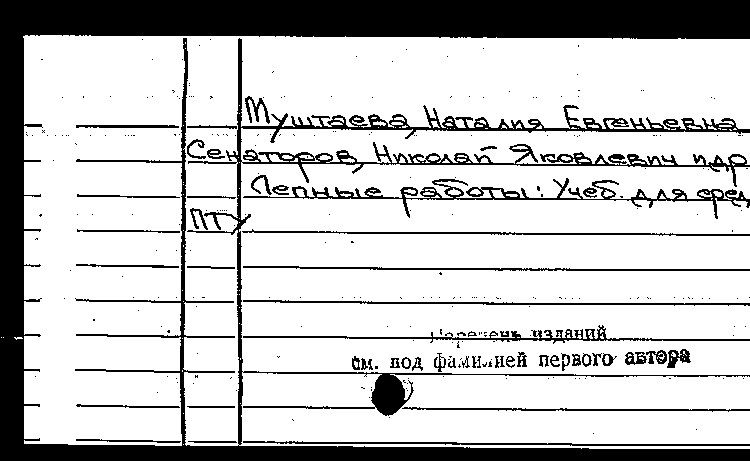 Муштаева, Наталия Евгеньевна
Сенаторов, Николай Яковлевич и др
Лепные работы: Учеб. для сред
ПТУ
Перечень изданий
см. под фамилией первого автора